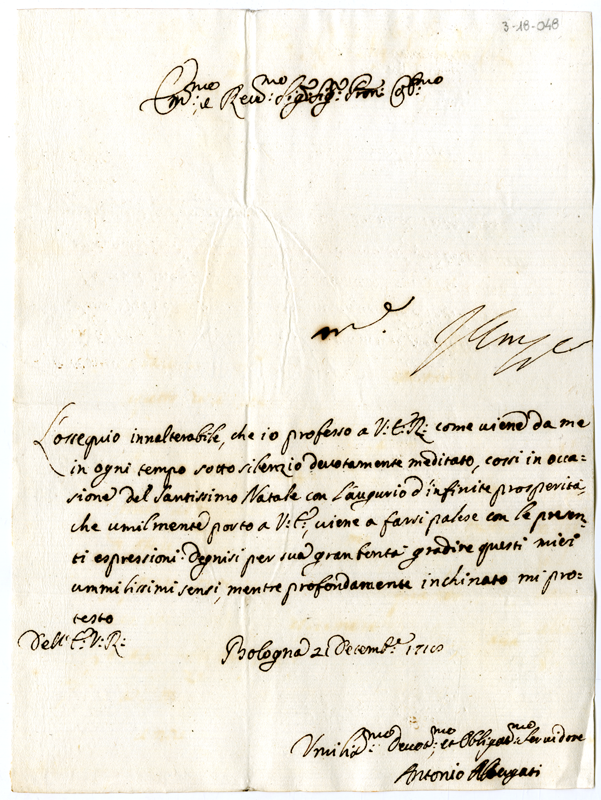 3-18-048
Em:mo e Rev:mo Sig:re Sig:re Pron: Col:mo
L'ossequio innalterabile, che io professo a V: E: R: come viene da me
in ogni tempo sotto silenzio devotamente meditato, cossi in occa=
sione del Santissimo Natale con L'augurio d'infinite prosperità,
che umilmente porto a V: E:, viene a farsi palese con le presen=
ti espressioni. Degnisi per sua gran bontà gradire questi miei
ummilissimi sensi, mentre profondamente inchinato mi pro=
testo
Dell' E: V: R:
Bologna 21 Decemb:e
Umiliss:mo Devot:mo et Obligat:mo Servidore
Antonio Albergati